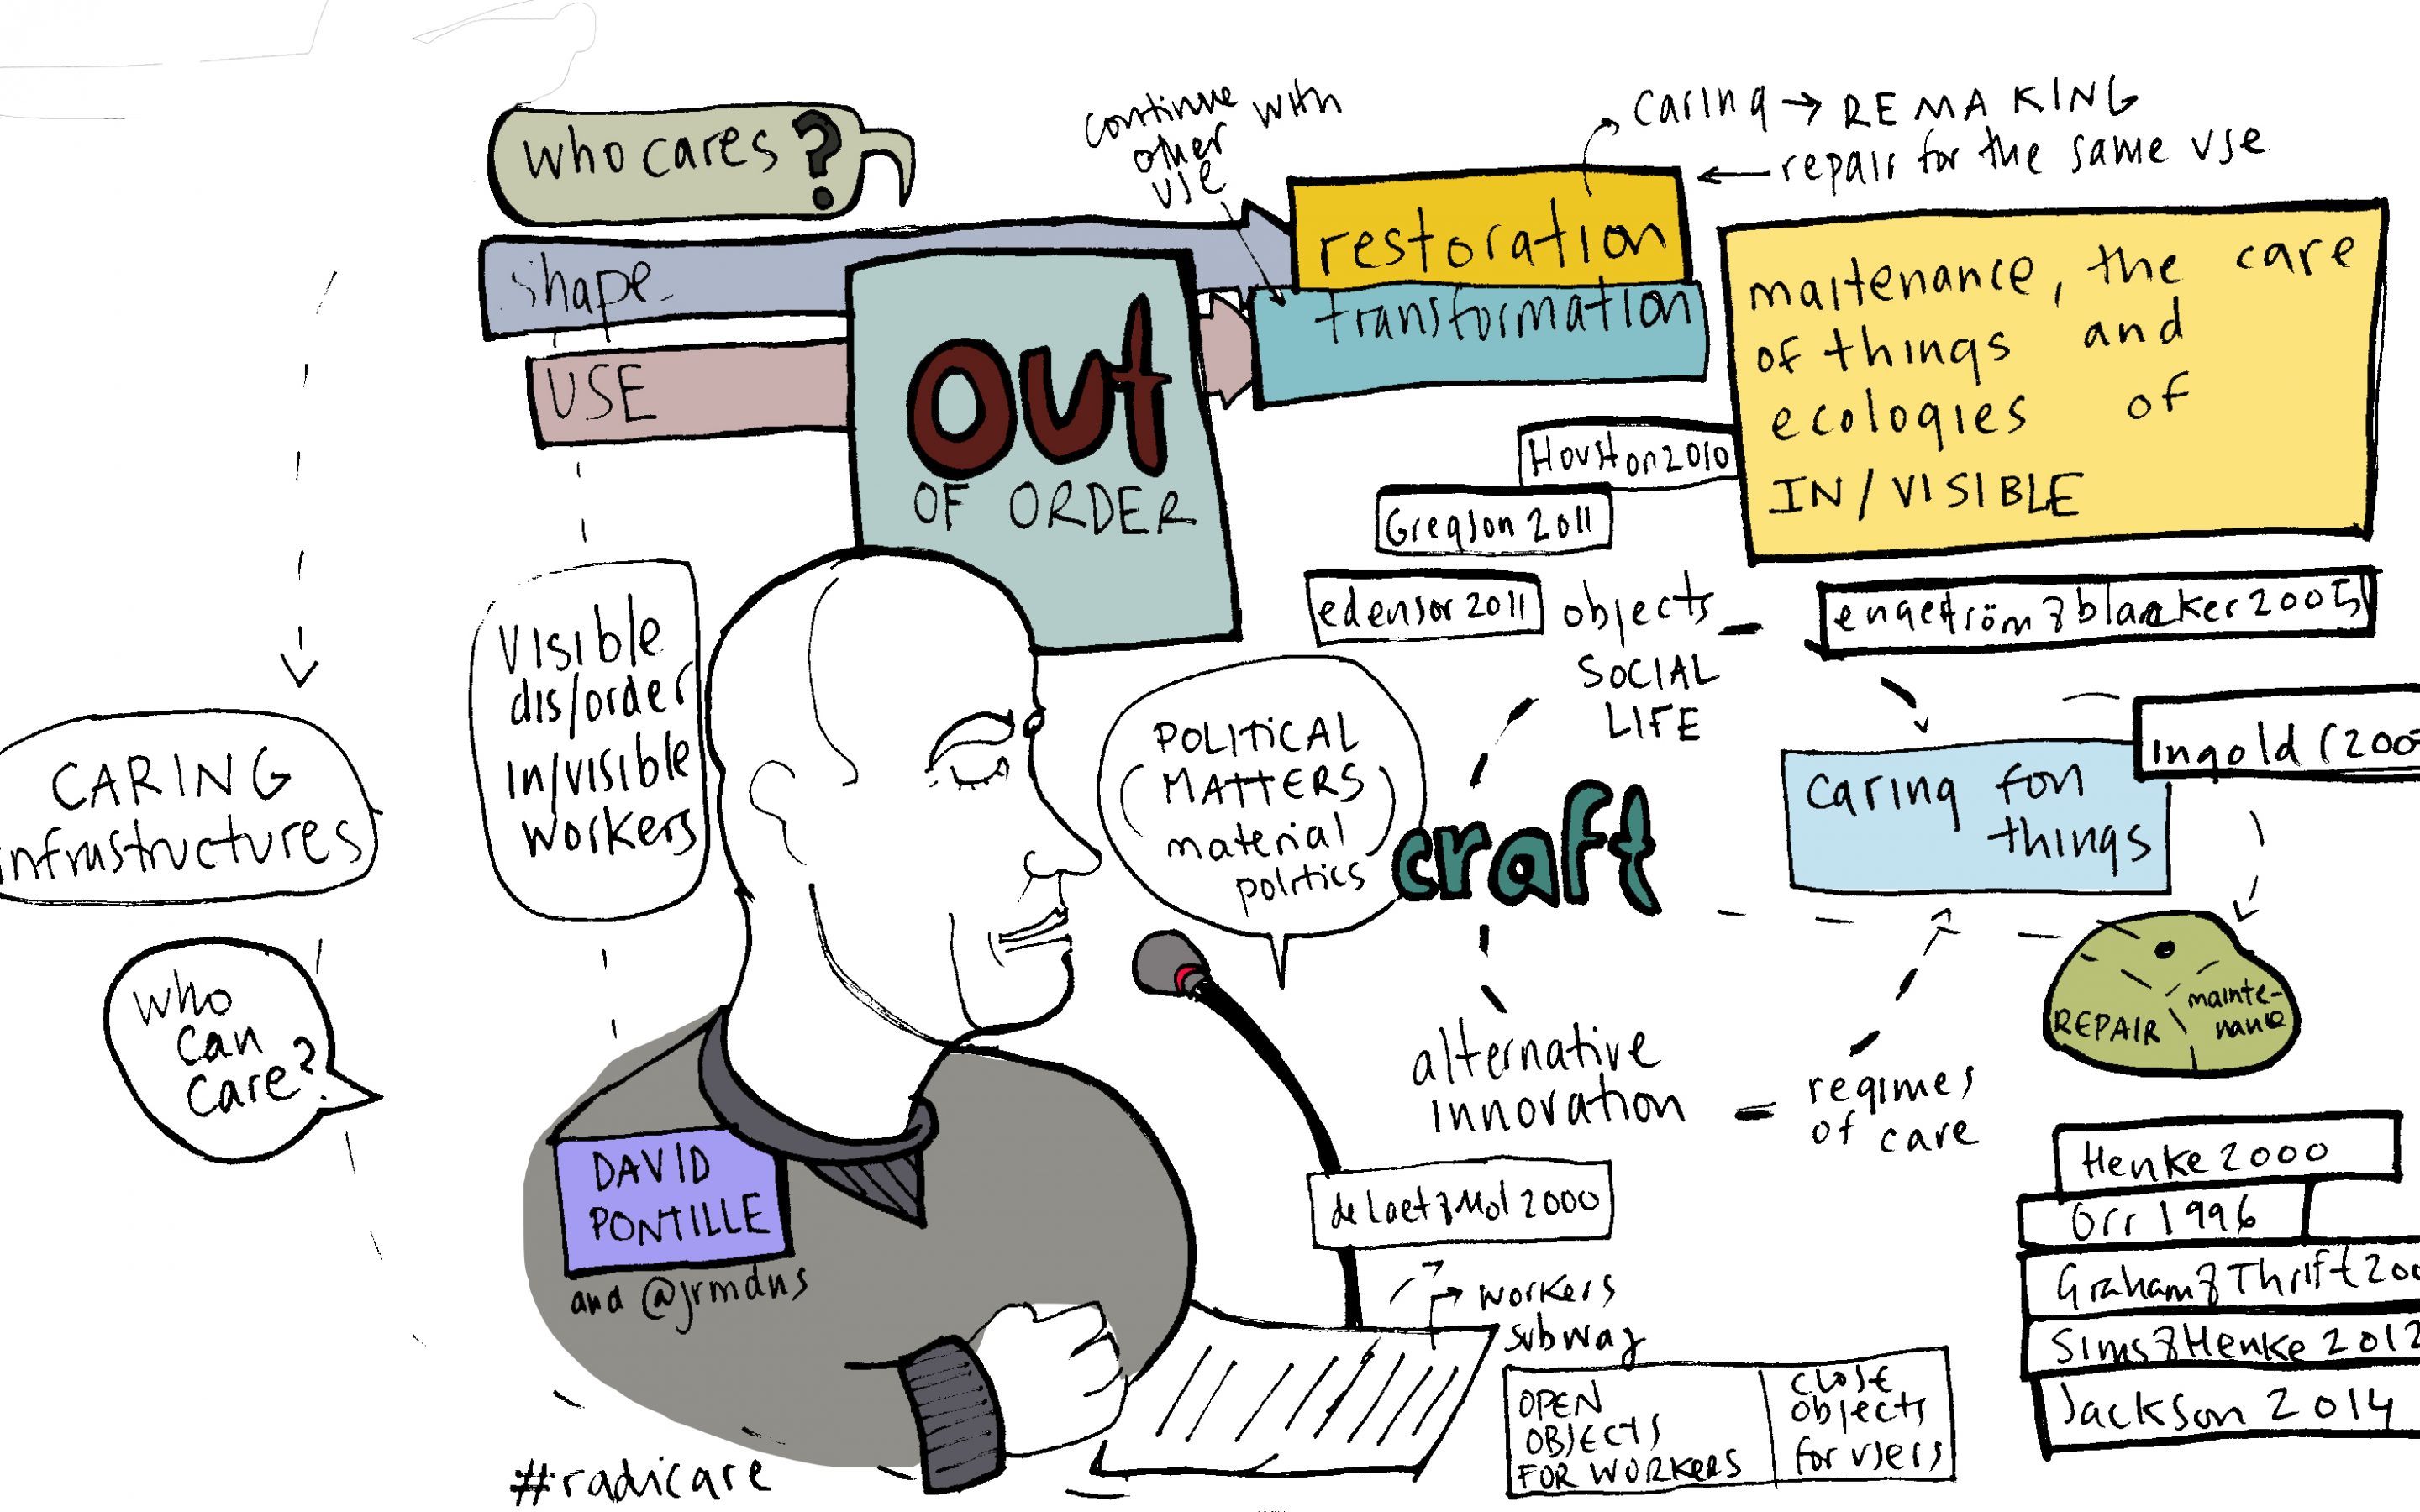 who cares?
continue with
other
use
caring → REMAKING
← repair for the same use
shape
USE
restoration
transformation
OUT
OF ORDER
maitenance, the care
of things and
ecologies of
IN/VISIBLE
Houston 2010
Gregson 2011
edensor 2011
objects
SOCIAL
LIFE
engeström & blacker 2005
Ingold (200
caring fon
things
Visible
dis/order
in/visible
workers
POLITICAL
MATTERS
material
politics
craft
CARING
infrastructures
who
can
care?
REPAIR
mainte-
nance
alternative
innovation
regimes
of care
DAVID
PONTILLE
and @jrmdns
de Laet & Mol 2000
workers
subway
OPEN
OBJECTS
FOR WORKERS
close
objects
for users
Henke 2000
Orr 1996
Graham & Thrift 200
Sims & Henke 2012
Jackson 2014
#radicare